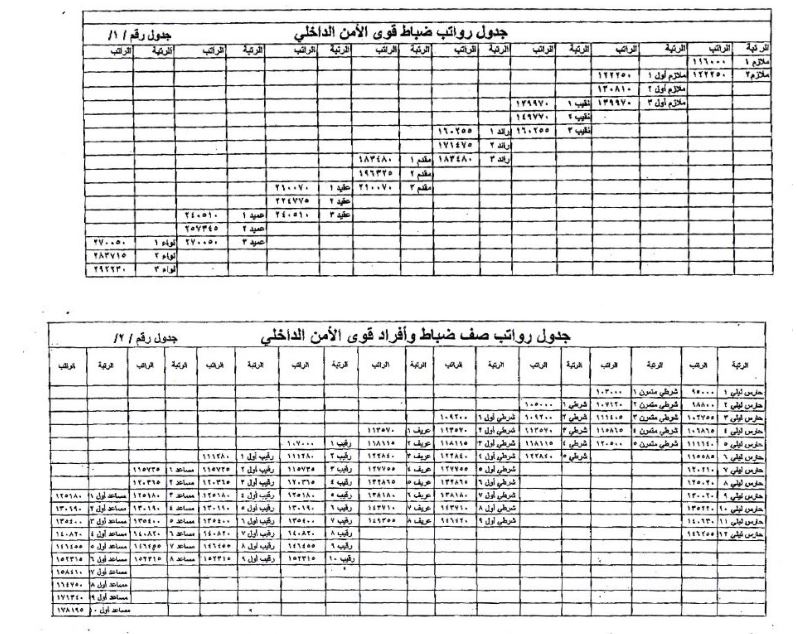 جدول رواتب ضباط قوى الأمن الداخلي جدول رقم /١/
الرتبة الراتب الرتبة الراتب الرتبة الراتب الرتبة الراتب الرتبة الراتب الرتبة الراتب الرتبة الراتب الرتبة الراتب
ملازم ١ ١١٦٠٠٠
ملازم٢ ١٢٢٢٥٠ ملازم أول ١ ١٢٢٢٥٠
ملازم أول ٢ ١٣٠٨١٠
ملازم أول ٣ ١٣٩٩٧٠ نقيب ١ ١٣٩٩٧٠
نقيب ٢ ١٤٩٧٧٠
نقيب ٣ ١٦٠٢٥٥ رائد ١ ١٦٠٢٥٥
رائد ٢ ١٧١٤٧٥
رائد ٣ ١٨٣٤٨٠ مقدم ١ ١٨٣٤٨٠
مقدم ٢ ١٩٦٣٢٥
مقدم ٣ ٢١٠٠٧٠ عقيد ١ ٢١٠٠٧٠
عقيد ٢ ٢٢٤٧٧٥
عقيد ٣ ٢٤٠٥١٠ عميد ١ ٢٤٠٥١٠
عميد ٢ ٢٥٧٣٤٥
عميد ٣ ٢٧٠٠٥٠ لواء ١ ٢٧٠٠٥٠
لواء ٢ ٢٨٣٧١٥
لواء ٣ ٢٩٢٢٣٠
جدول رواتب صف ضباط وأفراد قوى الأمن الداخلي جدول رقم /٢/
الرتبة الراتب الرتبة الراتب الرتبة الراتب الرتبة الراتب الرتبة الراتب الرتبة الراتب الرتبة الراتب الرتبة الراتب الرتبة الراتب
حارس ليلي ١ ٩٥٠٠٠ شرطي متمرن ١ ١٠٣٠٠٠
حارس ليلي ٢ شرطي متمرن ٢ ١٠٧١٢٠ شرطي ١ ١٠٥٠٠٠
حارس ليلي ٣ ١٠٢٧٥٥ شرطي متمرن ٣ ١١١٤٠٥ شرطي ٢ ١٠٩٢٠٠ شرطي أول ١ ١٠٩٢٠٠
حارس ليلي ٤ ١٠٦٨٦٥ شرطي متمرن ٤ ١١٥٨٦٥ شرطي ٣ ١١٣٥٧٠ شرطي أول ٢ ١١٣٥٧٠ عريف ١ ١١٣٥٧٠
حارس ليلي ٥ ١١١١٤٠ شرطي متمرن ٥ ١٢٠٥٠٠ شرطي ٤ ١١٨١١٥ شرطي أول ٣ ١١٨١١٥ عريف ٢ ١١٨١١٥ رقيب ١ ١٠٧٠٠٠
حارس ليلي ٦ ١١٥٥٨٥ شرطي ٥ ١٢٢٨٤٠ شرطي أول ٤ ١٢٢٨٤٠ عريف ٣ ١٢٢٨٤٠ رقيب ٢ ١١١٢٨٠ رقيب أول ١ ١١١٢٨٠
حارس ليلي ٧ ١٢٠٢١٠ شرطي أول ٥ ١٢٧٧٥٥ عريف ٤ ١٢٧٧٥٥ رقيب ٣ ١١٥٧٣٥ رقيب أول ٢ ١١٥٧٣٥ مساعد ١ ١١٥٧٣٥
حارس ليلي ٨ ١٢٥٠٢٠ شرطي أول ٦ ١٣٢٨٦٥ عريف ٥ ١٣٢٨٦٥ رقيب ٤ ١٢٠٣٦٥ رقيب أول ٣ ١٢٠٣٦٥ مساعد ٢ ١٢٠٣٦٥
حارس ليلي ٩ ١٣٠٠٢٠ شرطي أول ٧ ١٣٨١٨٠ عريف ٦ ١٣٨١٨٠ رقيب ٥ ١٢٥١٨٠ رقيب أول ٤ ١٢٥١٨٠ مساعد ٣ ١٢٥١٨٠ مساعد أول ١ ١٢٥١٨٠
حارس ليلي ١٠ ١٣٥٢٢٠ شرطي أول ٨ ١٤٣٧١٠ عريف ٧ ١٤٣٧١٠ رقيب ٦ ١٣٠١٩٠ رقيب أول ٥ ١٣٠١٩٠ مساعد ٤ ١٣٠١٩٠ مساعد أول ٢ ١٣٠١٩٠
حارس ليلي ١١ ١٤٠٦٣٠ شرطي أول ٩ عريف ٨ رقيب ٧ ١٣٥٤٠٠ رقيب أول ٦ ١٣٥٤٠٠ مساعد ٥ ١٣٥٤٠٠ مساعد أول ٣ ١٣٥٤٠٠
حارس ليلي ١٢ ١٤٦٢٥٥ رقيب ٨ ١٤٠٨٢٠ رقيب أول ٧ ١٤٠٨٢٠ مساعد ٦ ١٤٠٨٢٠ مساعد أول ٤ ١٤٠٨٢٠
رقيب ٩ ١٤٦٤٥٥ رقيب أول ٨ ١٤٦٤٥٥ مساعد ٧ ١٤٦٤٥٥ مساعد أول ٥ ١٤٦٤٥٥
رقيب ١٠ ١٥٢٣١٥ رقيب أول ٩ ١٥٢٣١٥ مساعد ٨ ١٥٢٣١٥ مساعد أول ٦ ١٥٢٣١٥
مساعد أول ٧ ١٥٨٤١٠
مساعد أول ٨ ١٦٤٧٥٠
مساعد أول ٩ ١٧١٣٤٠
مساعد أول ١٠ ١٧٨١٩٥